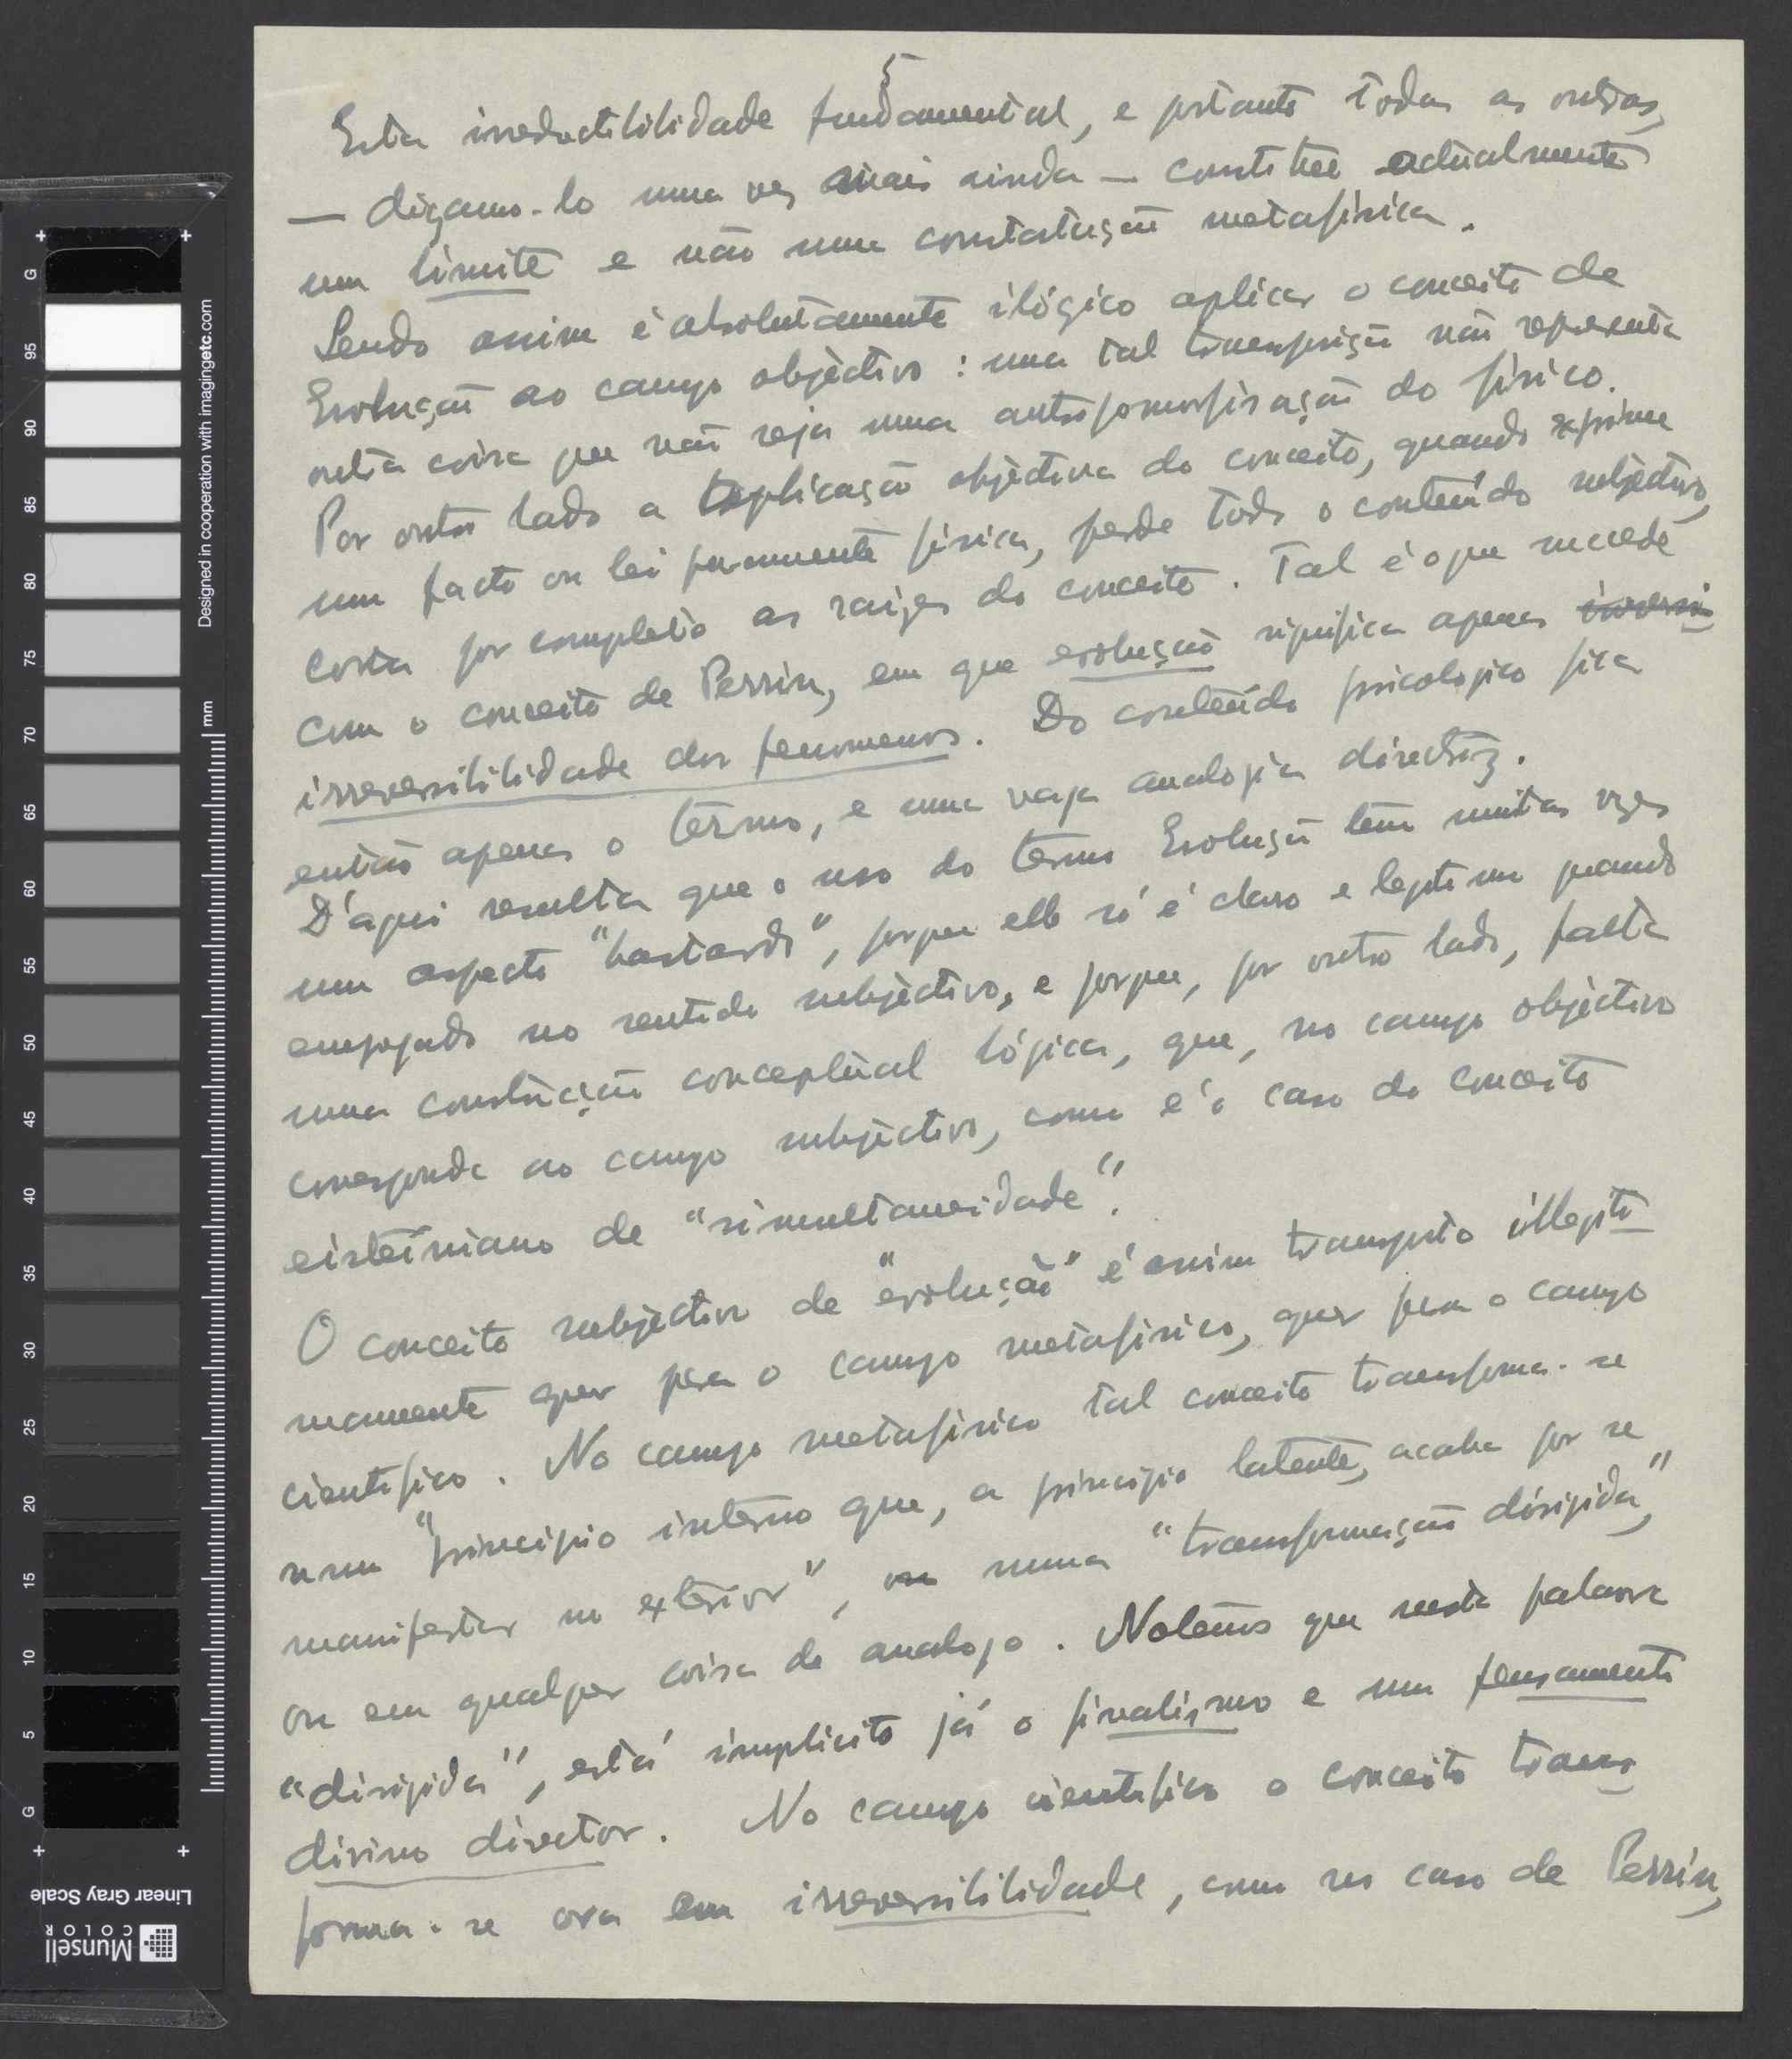 5
Esta irreductibilidade fundamental, e portanto todas as outras,
— digamo-lo uma vez mais ainda — constitue actualmente
um limite e não uma constatação metafísica.
Sendo assim é absolutamente ilógico aplicar o conceito de
Evolução ao campo objèctivo : uma tal transposição não representa
outra coisa que não seja uma antropomorfisação do físico.
Por outro lado a aplicação objèctiva do conceito, quando exprime
um facto ou lei puramente física, perde todo o conteúdo subjèctivo,
corta por completo as raízes do conceito. Tal é o que sucede
com o conceito de Perrin, em que evolução significa apenas
irreversibilidade dos fenomenos. Do conteúdo psicologico fica
então apenas o têrmo, e uma vaga analogia directriz.
D'aqui resulta que o uso do têrmo Evolução tem muitas vezes
um aspecto "bastardo", porque elle só é claro e legitimo quando
empregado no sentido subjèctivo, e porque, por outro lado, falta
uma construção conceptual lógica, que, no campo objèctivo
corresponda ao campo subjèctivo, como é o caso do conceito
eisteiniano de "simultaneidade".
O conceito subjèctivo de "evolução" é assim transposto illegiti-
mamente quer para o campo metafísico, quer para o campo
cientifico. No campo metafísico tal conceito transforma-se
num "principio interno que, a principio latente, acaba por se
manifestar no exterior", ou numa "transformação dirigida,"
ou em qualquer coisa de analogo. Notemos que nesta palavra
"dirigida", está implicito já o finalismo e um pensamento
divino director. No campo cientifico o conceito trans-
forma-se ora em irreversibilidade, como no caso de Perrin,
Designed in cooperation with imagingetc.com
mm
G 95 90 85 80 75 70 65 60 55 50 45 40 35 30 25 20 15 10 5 G
Linear Gray Scale
Munsell
COLOR